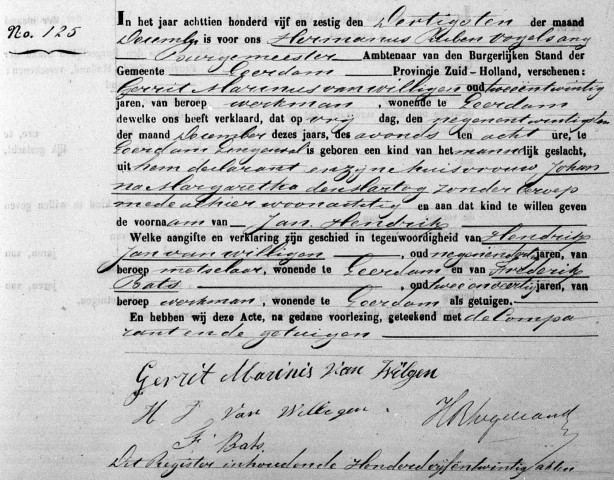 No. 125
In het jaar achttien honderd vijf en zestig den Dertigsten der maand
December is voor ons Hermanus Ruben Vogelsang
Burgemeester Ambtenaar van den Burgerlijken Stand der
Gemeente Leerdam Provincie Zuid-Holland, verschenen:
Gerrit Marinus van Willigen oud tweeëntwintig
jaren, van beroep werkman, wonende te Leerdam
dewelke ons heeft verklaard, dat op vrij dag, den negenentwintigsten
der maand December dezes jaars, des avonds ten acht ure, te
Leerdam is geboren een kind van het mannelijk geslacht,
uit hem declarant en zijne huisvrouw Johan
na Margaretha den Hartog zonder beroep
mede alhier woonachtig en aan dat kind te willen geven
de voornaam van Jan Hendrik
Welke aangifte en verklaring zijn geschied in tegenwoordigheid van Hendrik
Jan van Willigen, oud jaren, van
beroep metselaar, wonende te Leerdam en van Frederik
Bats, oud tweeenveertig jaren, van
beroep werkman, wonende te Leerdam als getuigen.
En hebben wij deze Acte, na gedane voorlezing, geteekend met de Compa
rant en de getuigen
Gerrit Marinis Van Wilgen
H J Van Willigen. HRVogelsand
F. Bats.
Dit Register inhoudende Honderd vijfentwintig akten